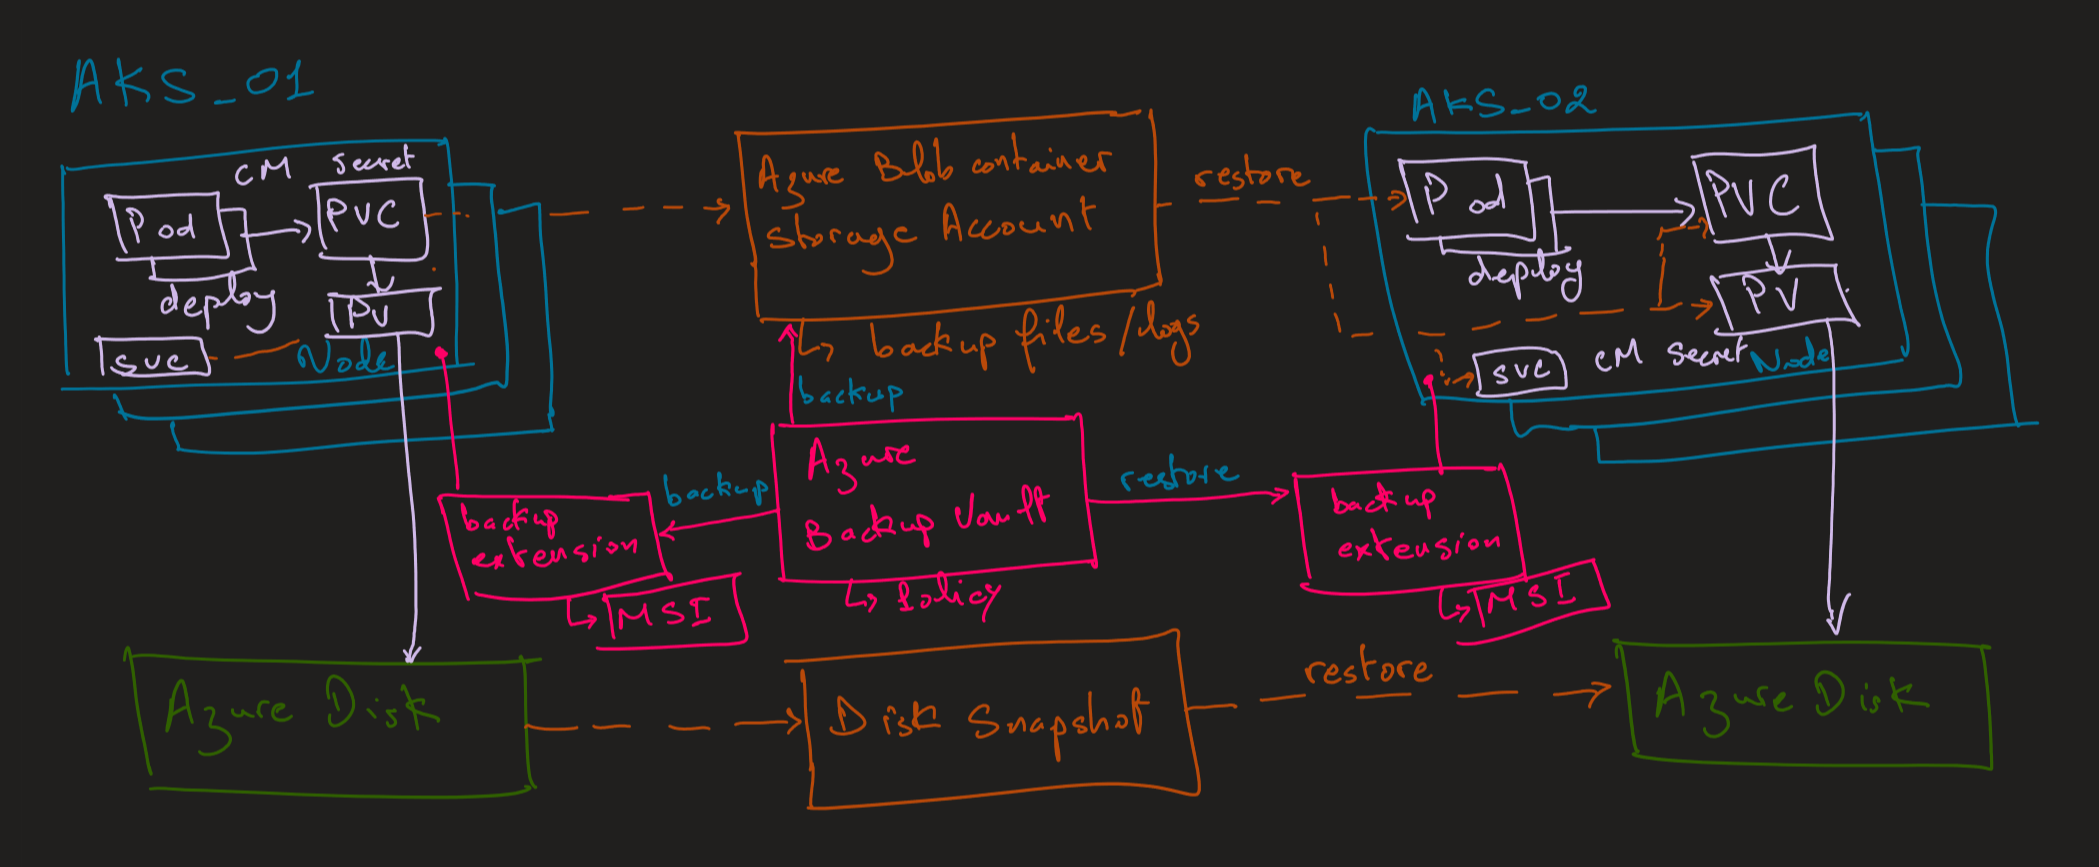 AKS_01
CM secret
Pod
PVC
deploy
PV
svc
Node
Azure Blob container
storage Account
backup files/logs
restore
AKS_02
Pod
PVC
deploy
PV
svc
CM secret
Node
backup
Azure
Backup Vault
Policy
backup
restore
backup
extension
MSI
backup
extension
MSI
Azure Disk
Disk Snapshot
restore
Azure Disk